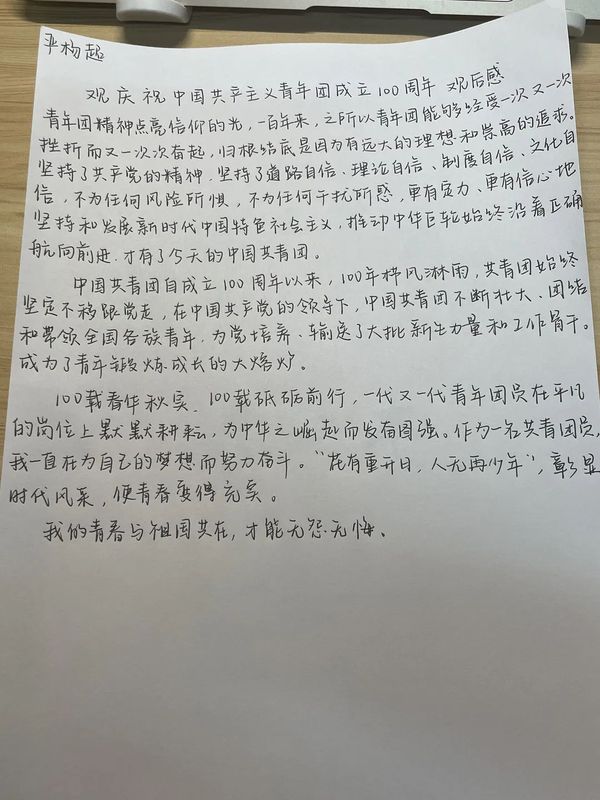 平杨超
观庆祝中国共产主义青年团成立100周年 观后感
青年团精神点亮信仰的光,一百年来,之所以青年团能够经受一次又一次
挫折而又一次次奋起,归根结底是因为有远大的理想和崇高的追求。
坚持了共产党的精神,坚持了道路自信、理论自信、制度自信、文化自
信,不为任何风险所惧,不为任何干扰所惑,更有定力、更有信心地
坚持和发展新时代中国特色社会主义,推动中华巨轮始终沿着正确
航向前进.才有了今天的中国共青团。
中国共青团自成立100周年以来,100年栉风淋雨,共青团始终
坚定不移跟党走,在中国共产党的领导下,中国共青团不断壮大、团结
和带领全国各族青年.为党培养、输送了大批新生力量和工作骨干。
成为了青年锻炼成长的大熔炉。
100载春华秋实,100载砥砺前行,一代又一代青年团员在平凡
的岗位上默默耕耘,为中华之崛起而发奋图强。作为一名共青团员,
我一直在为自己的梦想而努力奋斗。“花有重开日,人无再少年”,彰显
时代风采,使青春变得充实。
我的青春与祖国共在,才能无怨无悔、